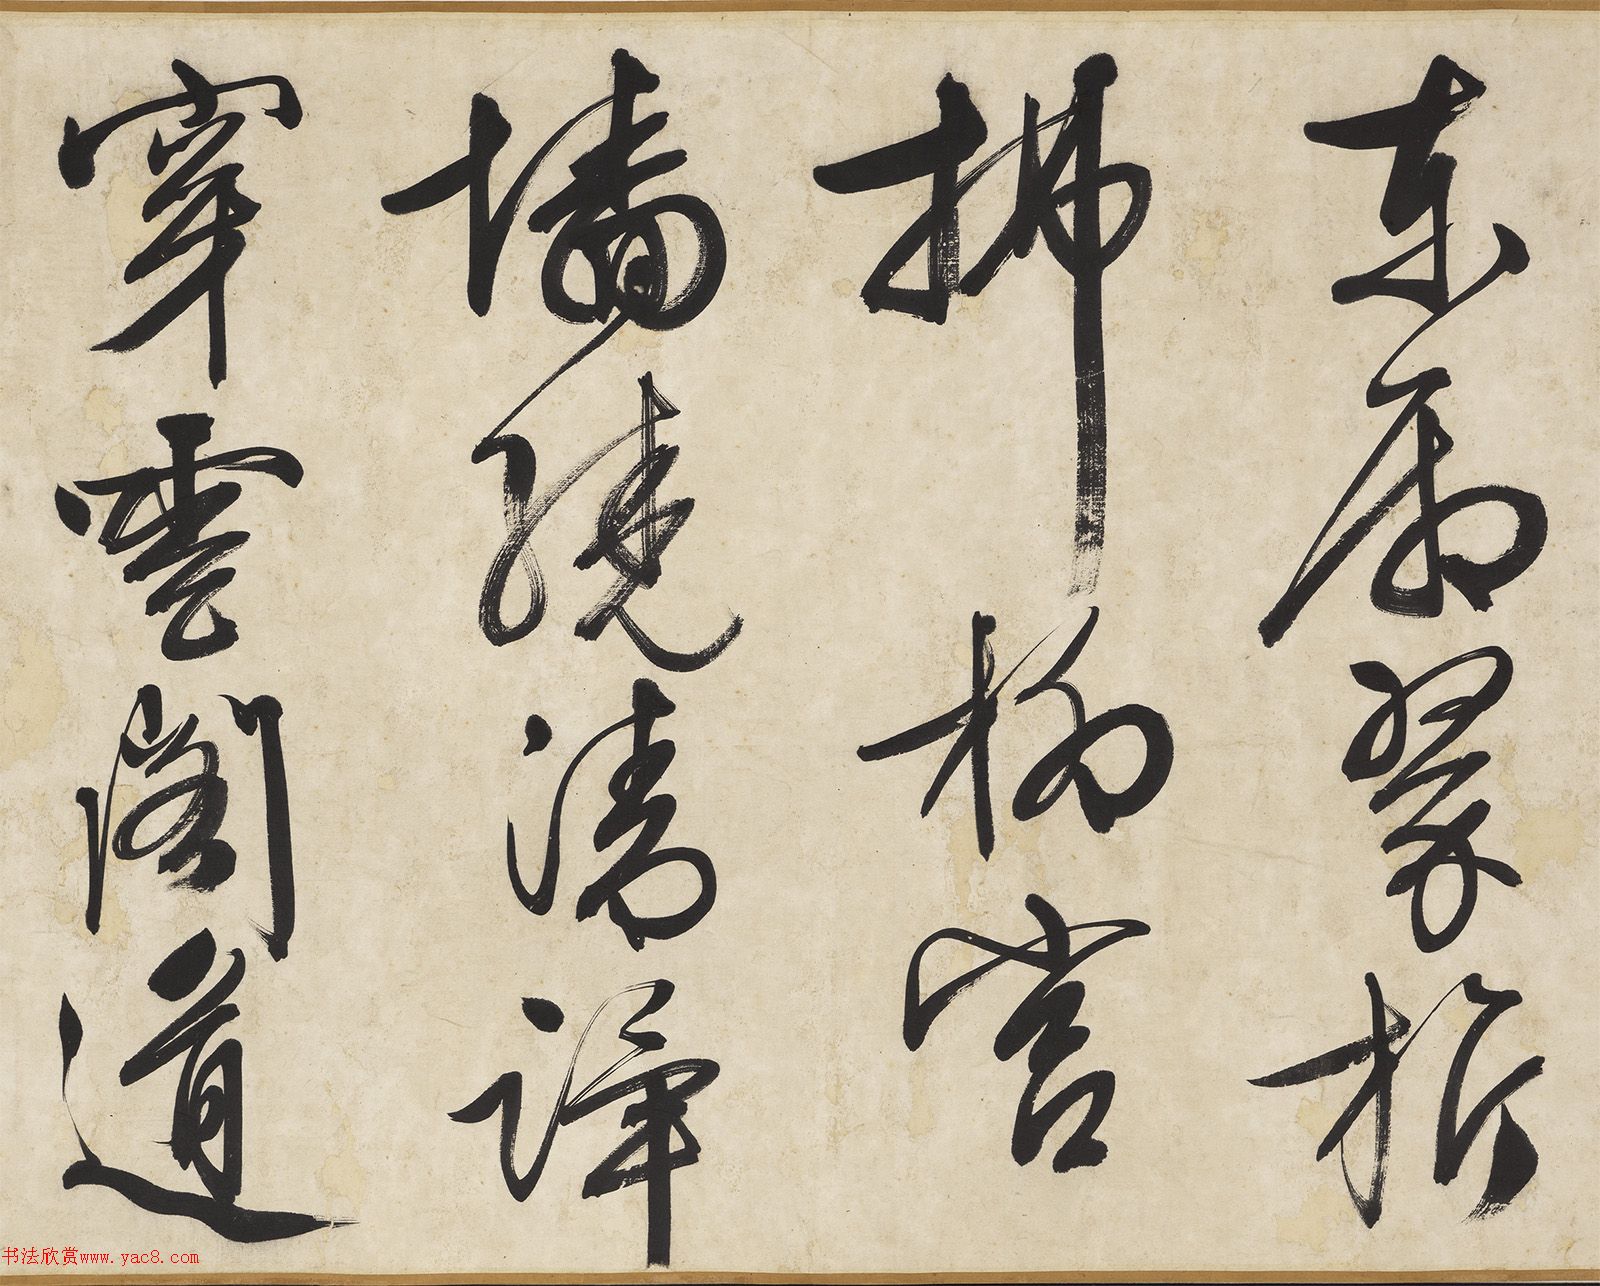 東翠旂
拂柳宮
墻繞清蹕
穿雲閣道
书法欣赏www.yac8.com